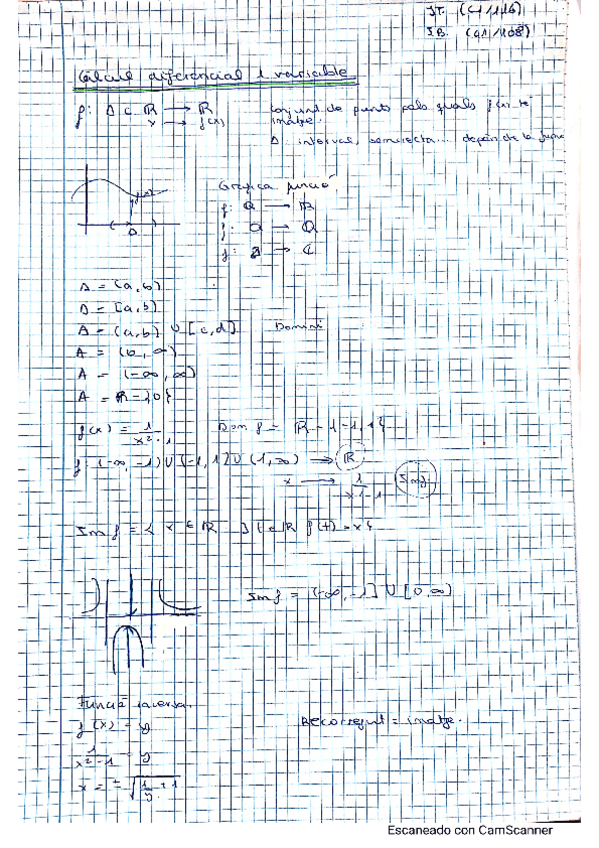 JT. (C1/116)
SB. (C1/108)
Càlcul diferencial 1 variable
f: A ⊂ ℝ → ℝ conjunt de punts pels quals f(x) té
x → f(x) imatge.
A: interval, semirecta... depèn de la funció
Gràfica funció
f: ℚ → ℝ
f: ℚ → ℚ
f: → ℂ
A = (a,b)
A = [a,b)
A = (a,b) ∪ [c,d] Domini
A = (0, ∞)
A = (-∞, ∞)
A = ℝ - {0}
f(x) = 1/(x²-1) Dom f = ℝ - {-1,1}
f: (-∞, -1) ∪ (-1,1) ∪ (1, ∞) → ℝ
x → 1/(x²-1) Im f
Im f = { x ∈ ℝ ∃ t ∈ ℝ f(t) = x }
Im f = (-∞, -1] ∪ [0 ∞)
Funció inversa.
f(x) = y Recorregut = imatge.
1/(x²-1) = y
x = ± √(1/y + 1)
Escaneado con CamScanner